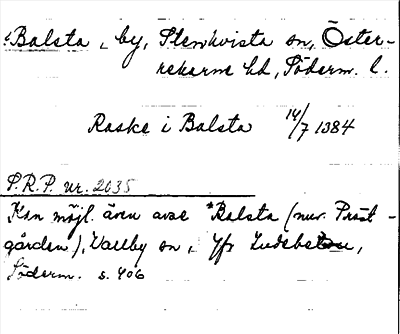 Balsta, by, Stenkvista sn, Öster-
rekarne hd, Söderm. l.
Raske i Balsta 14/7 1384
S.R.P. nr. 2635
Kan möjl. även avse *Balsta (nuv. Präst-
gården), Vallby sn, Jfr
Söderm. s. 406